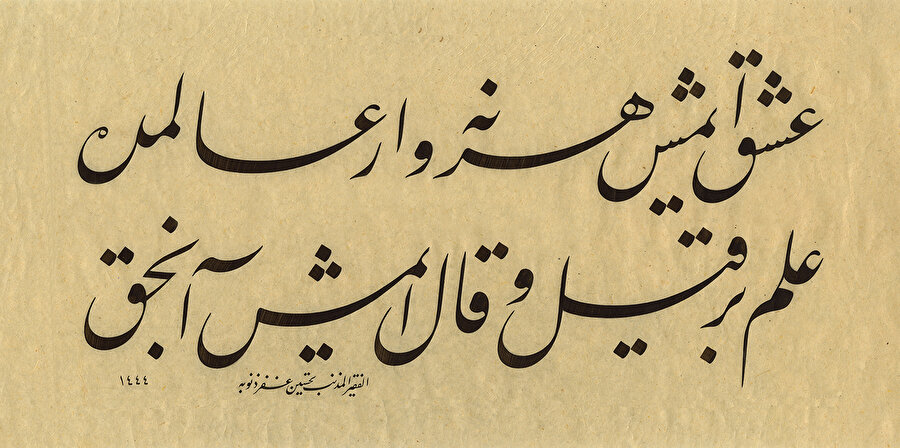 عشق ایمش هر نه وار عالمده
علم بر قیل و قال ایمش آنجق
الفقیر المذنب تحسین غفر ذنوبه
١٤٤٤